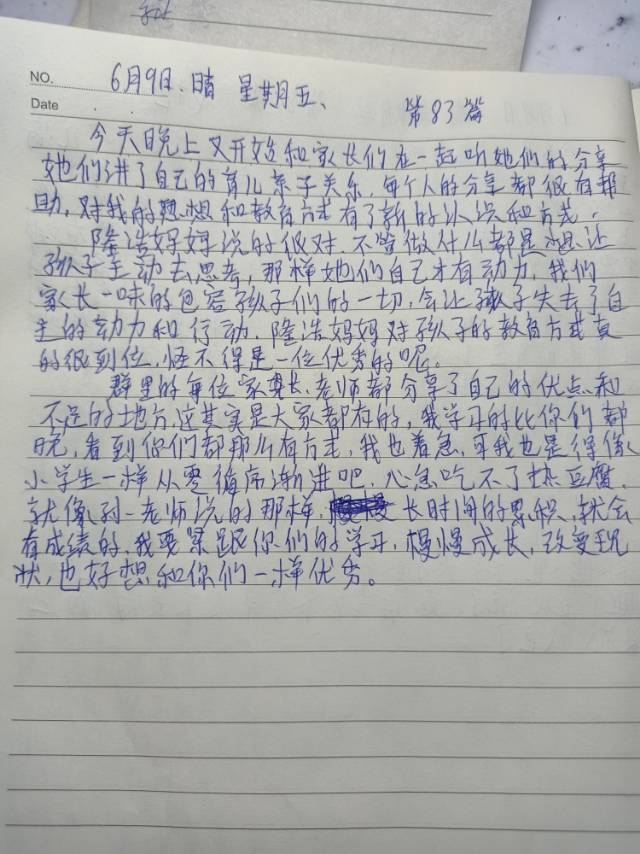 NO. 6月9日.晴 星期五、
Date 第83篇
今天晚上又开始和家长们在一起听她们的分享
她们讲了自己的育儿亲子关系,每个人的分享都很有帮
助,对我的思想和教育方式有了新的认识和方式.
隆浩妈妈说的很对,不管做什么都是想让
孩子主动去思考,那样她们自己才有动力,我们
家长一味的包容孩子们的一切,会让孩子失去了自
主的动力和行动,隆浩妈妈对孩子的教育方式真
的很到位,怪不得是一位优秀的呢。
群里的每位家长,老师都分享了自己的优点和
不足的地方,这其实是大家都有的,我学习的比你们都
晚,看到你们都那么有方式,我也着急,可我也是得像
小学生一样从零循序渐进吧,心急吃不了热豆腐,
就像孙一老师说的那样,长时间的累积,就会
有成绩的,我要紧跟你们的学习,慢慢成长,改变现
状,也好想和你们一样优秀。